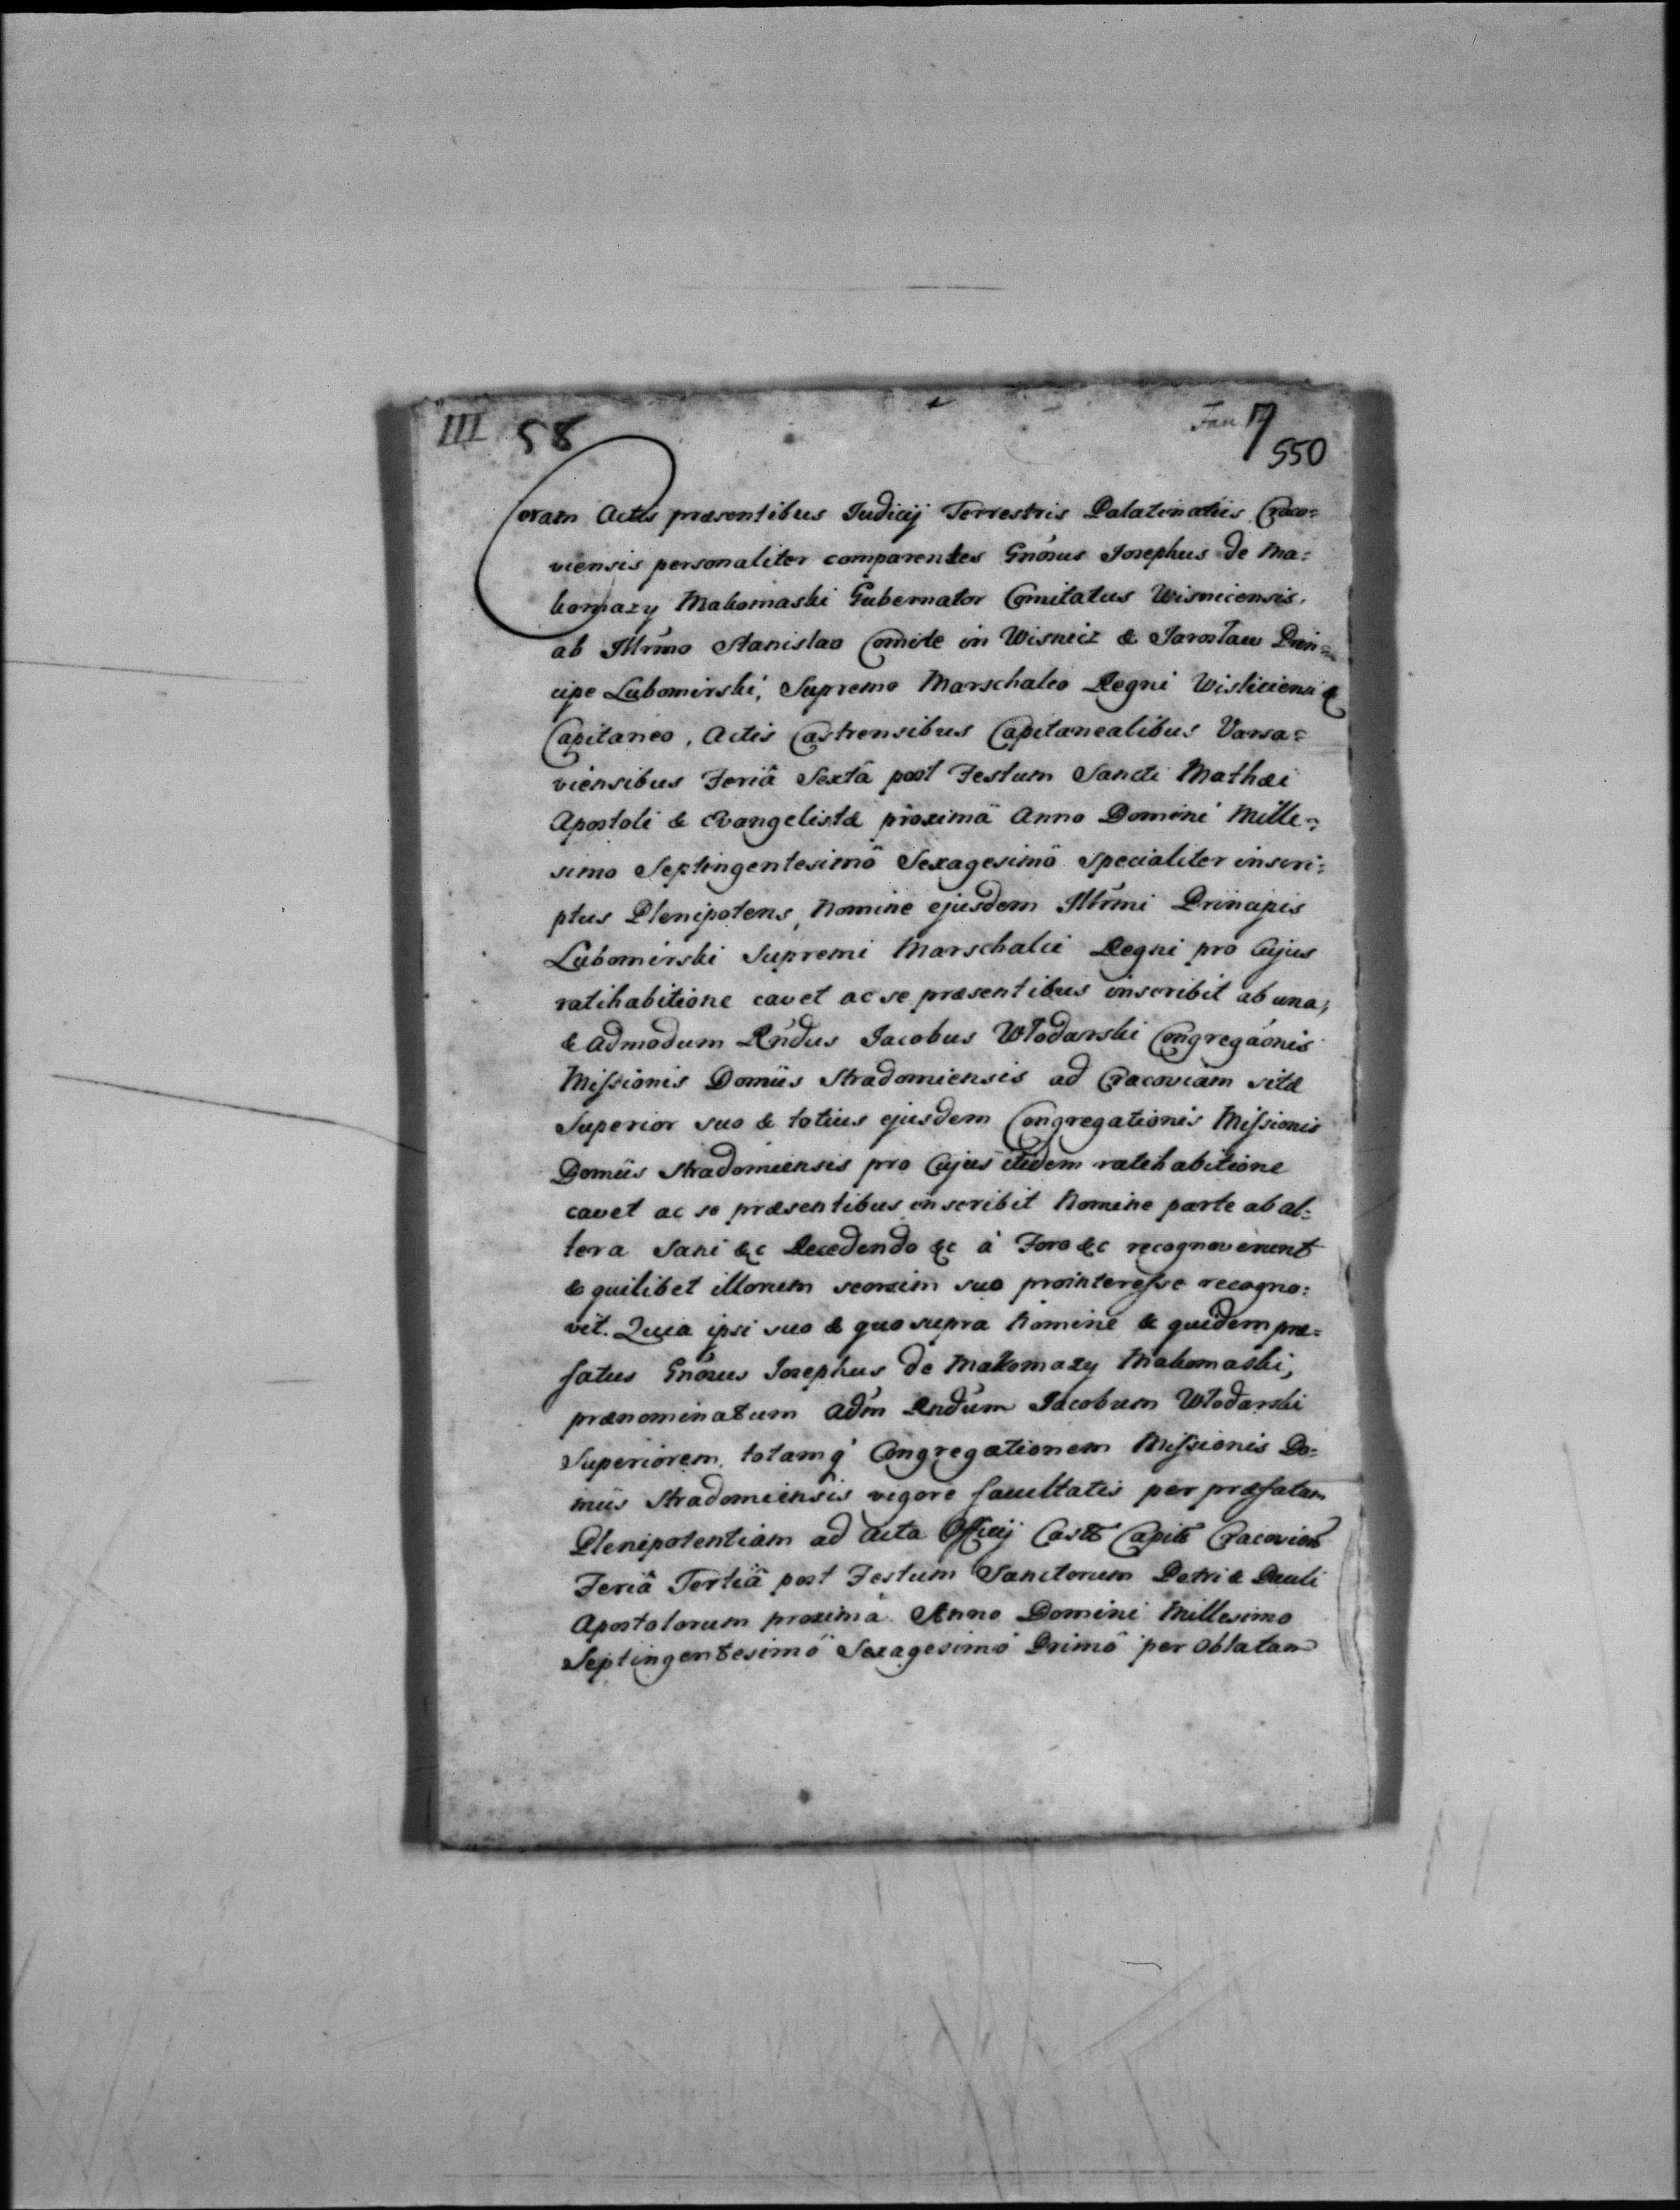 III 58
Fan 17
550
Coram Actis præsentibus Judicij Terrestris Palatinatûs Craco=
viensis personaliter comparentes Gnõsus Josephus de Ma=
komazy Makomaski Gubernator Comitatus Wisnicensis,
ab Illrmo Stanislao Comite in Wisnicz & Jarosław Prin=
cipe Lubomirski, Supremo Marschalco Regni Wisliciensi &
Capitaneo, Actis Castrensibus Capitanealibus Varsa=
viensibus Feriâ Sextâ post Festum Sancti Mathæi
Apostoli & Evangelistæ proximâ Anno Domini Mille=
simo Septingentesimô Sexagesimô specialiter inscri=
ptus Plenipotens, Nomine ejusdem Illrmi Principis
Lubomirski Supremi Marschalci Regni pro Cujus
ratihabitione cavet ac se præsentibus inscribit ab una,
& Admodum Rndus Jacobus Włodarski Congregaõnis
Missionis Domûs Stradomiensis ad Cracoviam sitæ
Superior suo & totius ejusdem Congregationis Missionis
Domûs Stradomiensis pro Cujus itidem ratihabitione
cavet ac se præsentibus inscribit Nomine parte ab al=
tera Sani &c Recedendo &c à Foro &c recognoverunt
& quilibet illorum seorsim suo prointeresse recogno=
vit. Quia ipsi suo & quo supra Nomine & quidem præ=
fatus Gnõsus Josephus de Makomazy Makomaski,
prænominatum Adm Rndum Jacobum Włodarski
Superiorem, totamq' Congregationem Missionis Do=
mûs Stradomiensis vigore facultatis per præfatam
Plenipotentiam ad Acta Officij Castr Capit Cracovien
Feriâ Tertiâ post Festum Sanctorum Petri & Pauli
Apostolorum proximâ Anno Domini Millesimo
Septingentesimô Sexagesimô Primô per Oblatam